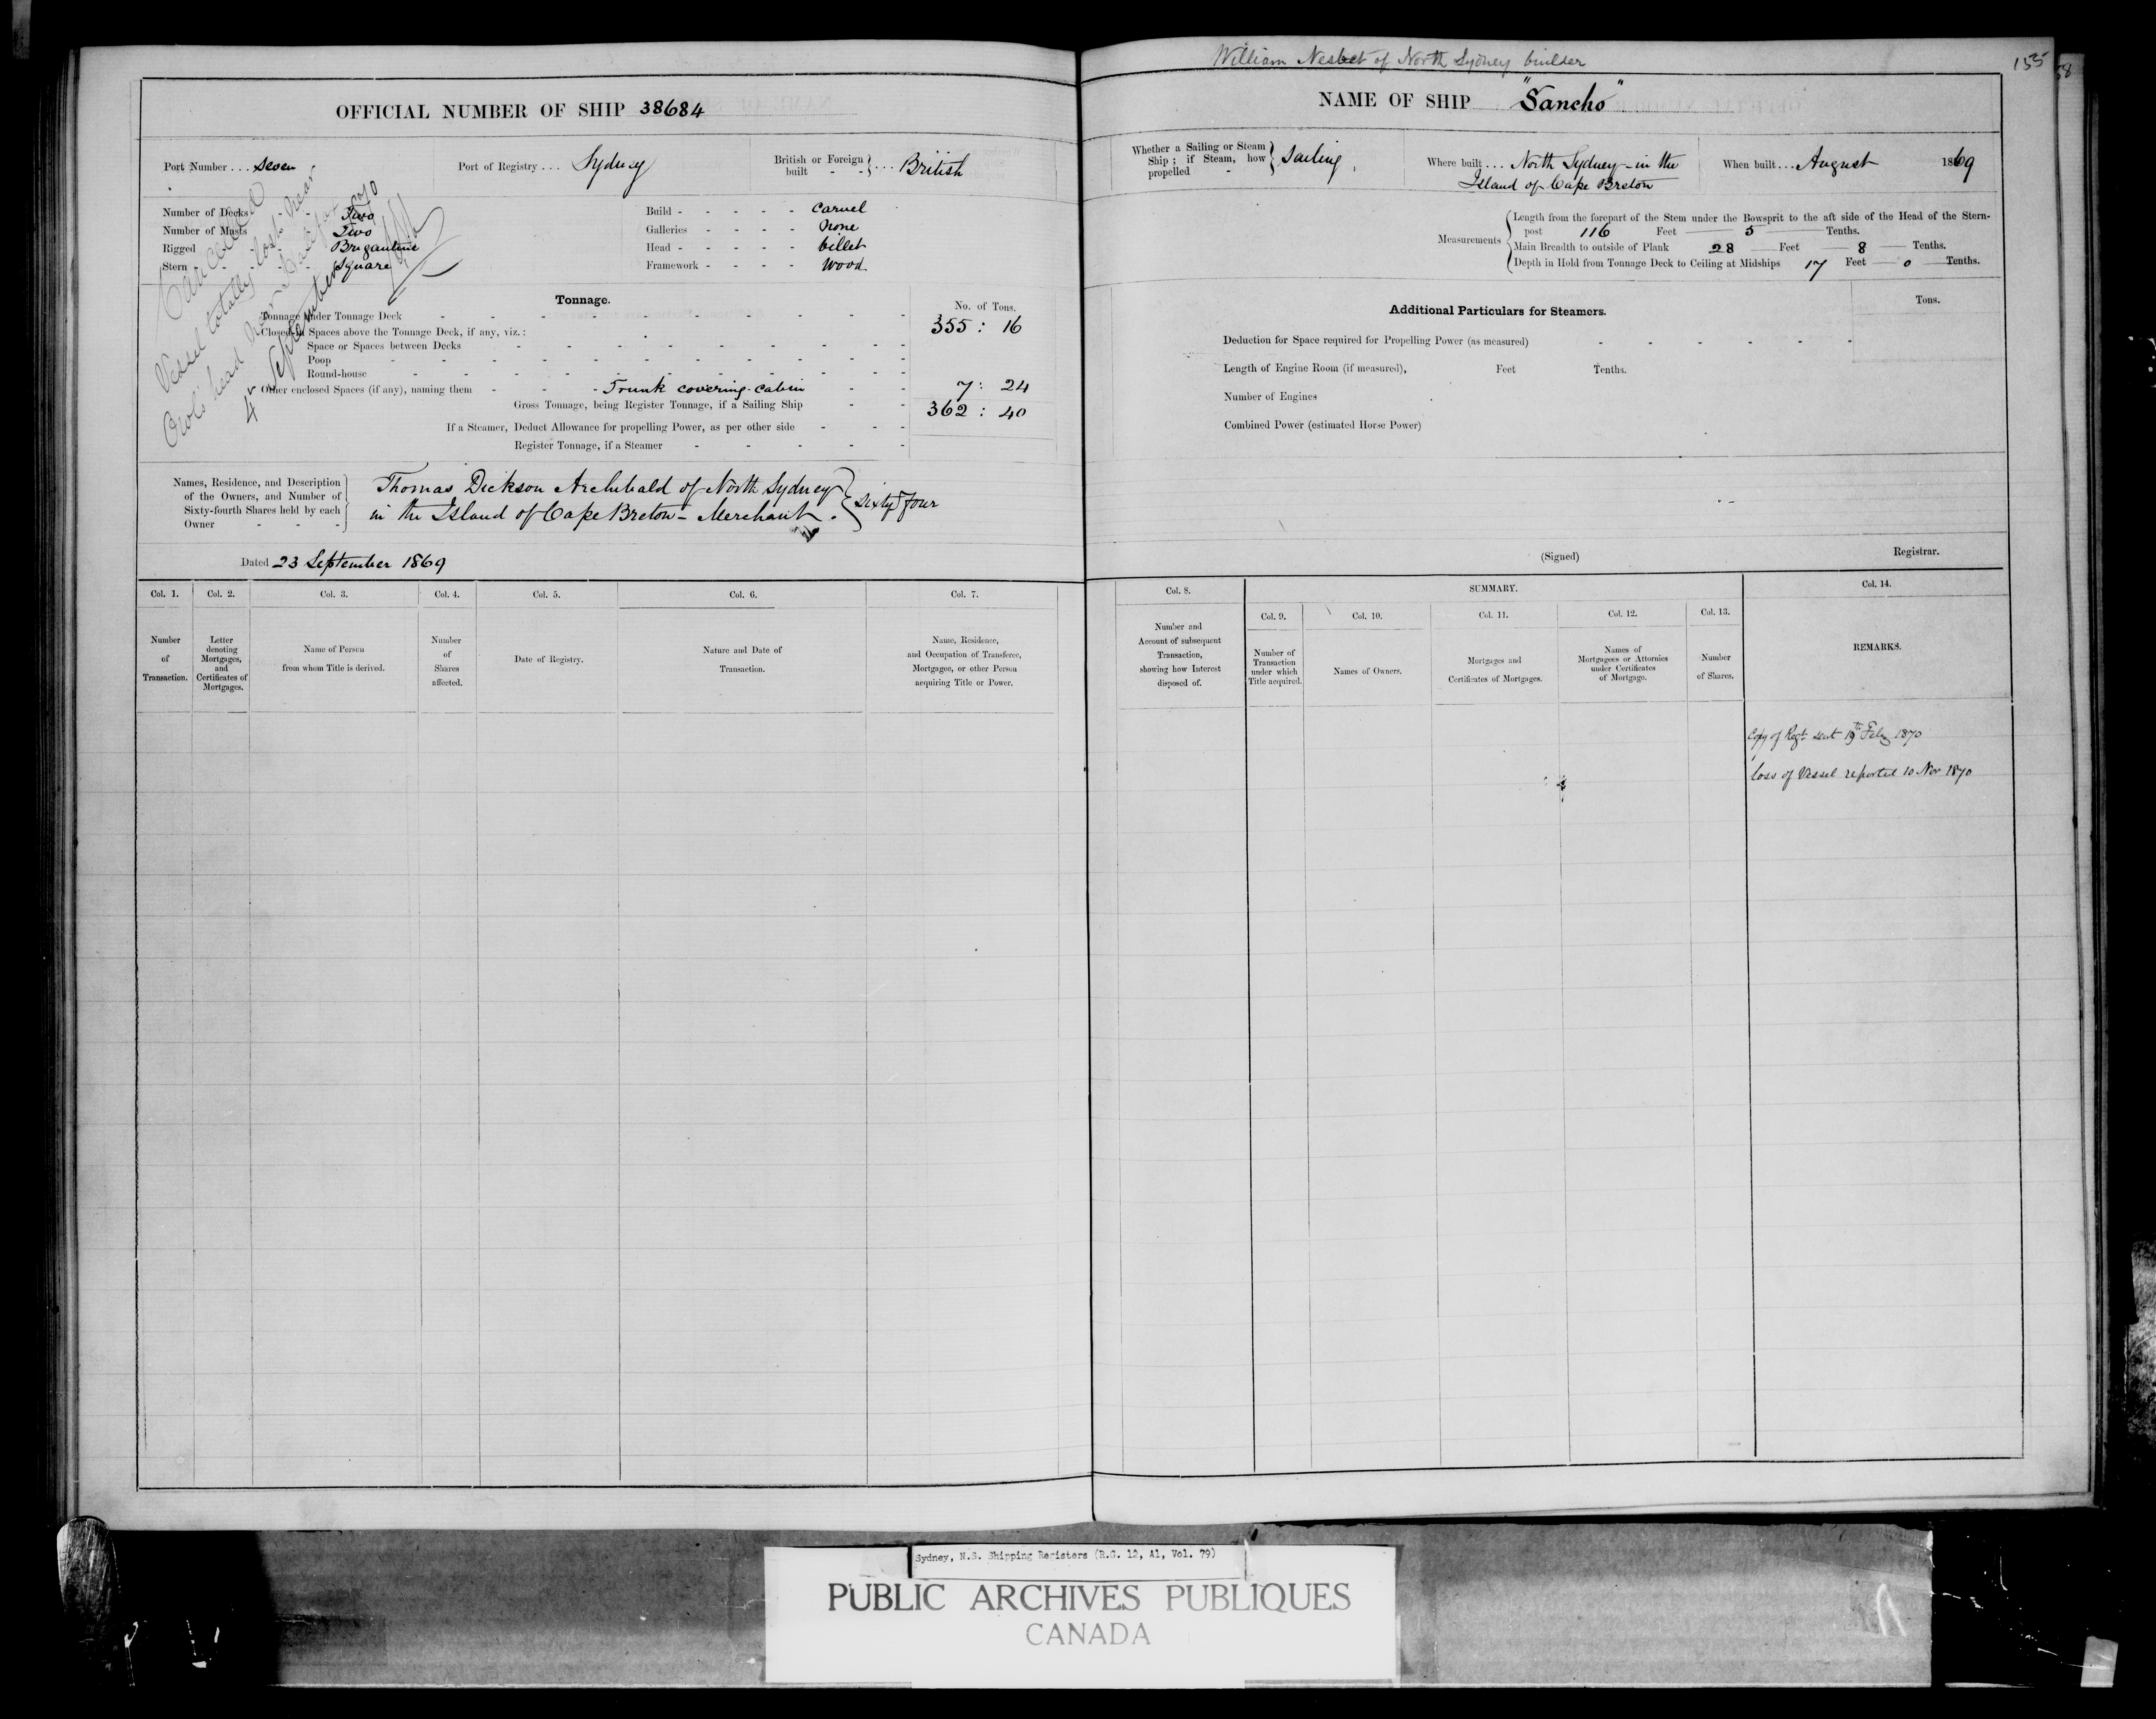 William Nesbet of North Sydney builder
155
58
OFFICIAL NUMBER OF SHIP 38684
NAME OF SHIP "Sancho"
Port Number . . . Seven
Port of Registry . . . Sydney
British or Foreign built - - } . . . British
Whether a Sailing or Steam Ship ; if Steam, how propelled - } Sailing
Where built . . . North Sydney - in the
Island of Cape Breton
When built . . . August 1869
Number of Decks Two
Number of Masts Two
Rigged Brigantine
Stern Square
Build - - - - - Carvel
Galleries - - - - None
Head - - - - - billet
Framework - - - - Wood
Cancelled
Vessel totally lost near
Owls head near Halifax
4th September 1870
Measurements
Length from the forepart of the Stem under the Bowsprit to the aft side of the Head of the Stern-
post 116 Feet 5 Tenths.
Main Breadth to outside of Plank 28 Feet 8 Tenths.
Depth in Hold from Tonnage Deck to Ceiling at Midships 17 Feet 0 Tenths.
Tonnage.
No. of Tons.
Tonnage under Tonnage Deck 355 : 16
Closed-in Spaces above the Tonnage Deck, if any, viz. :
Space or Spaces between Decks
Poop
Round-house
Other enclosed Spaces (if any), naming them - Trunk covering cabin 7 : 24
Gross Tonnage, being Register Tonnage, if a Sailing Ship 362 : 40
If a Steamer, Deduct Allowance for propelling Power, as per other side
Register Tonnage, if a Steamer
Additional Particulars for Steamers.
Tons.
Deduction for Space required for Propelling Power (as measured)
Length of Engine Room (if measured), Feet Tenths.
Number of Engines
Combined Power (estimated Horse Power)
Names, Residence, and Description
of the Owners, and Number of
Sixty-fourth Shares held by each
Owner - - -
Thomas Dickson Archibald of North Sydney
in the Island of Cape Breton - Merchant. } Sixty four
Dated 23 September 1869
(Signed)
Registrar.
Col. 1.
Number
of
Transaction.
Col. 2.
Letter
denoting
Mortgages,
and
Certificates of
Mortgages.
Col. 3.
Name of Person
from whom Title is derived.
Col. 4.
Number
of
Shares
affected.
Col. 5.
Date of Registry.
Col. 6.
Nature and Date of
Transaction.
Col. 7.
Name, Residence,
and Occupation of Transferee,
Mortgagee, or other Person
acquiring Title or Power.
Col. 8.
Number and
Account of subsequent
Transaction,
showing how Interest
disposed of.
SUMMARY.
Col. 9.
Number of
Transaction
under which
Title acquired.
Col. 10.
Names of Owners.
Col. 11.
Mortgages and
Certificates of Mortgages.
Col. 12.
Names of
Mortgagees or Attornies
under Certificates
of Mortgage.
Col. 13.
Number
of Shares.
Col. 14.
REMARKS.
Copy of Regt. sent 19th Feby 1870
Loss of Vessel reported 10 Nov 1870
Sydney, N.S. Shipping Registers (R.G. 12, A1, Vol. 79)
PUBLIC ARCHIVES PUBLIQUES
CANADA